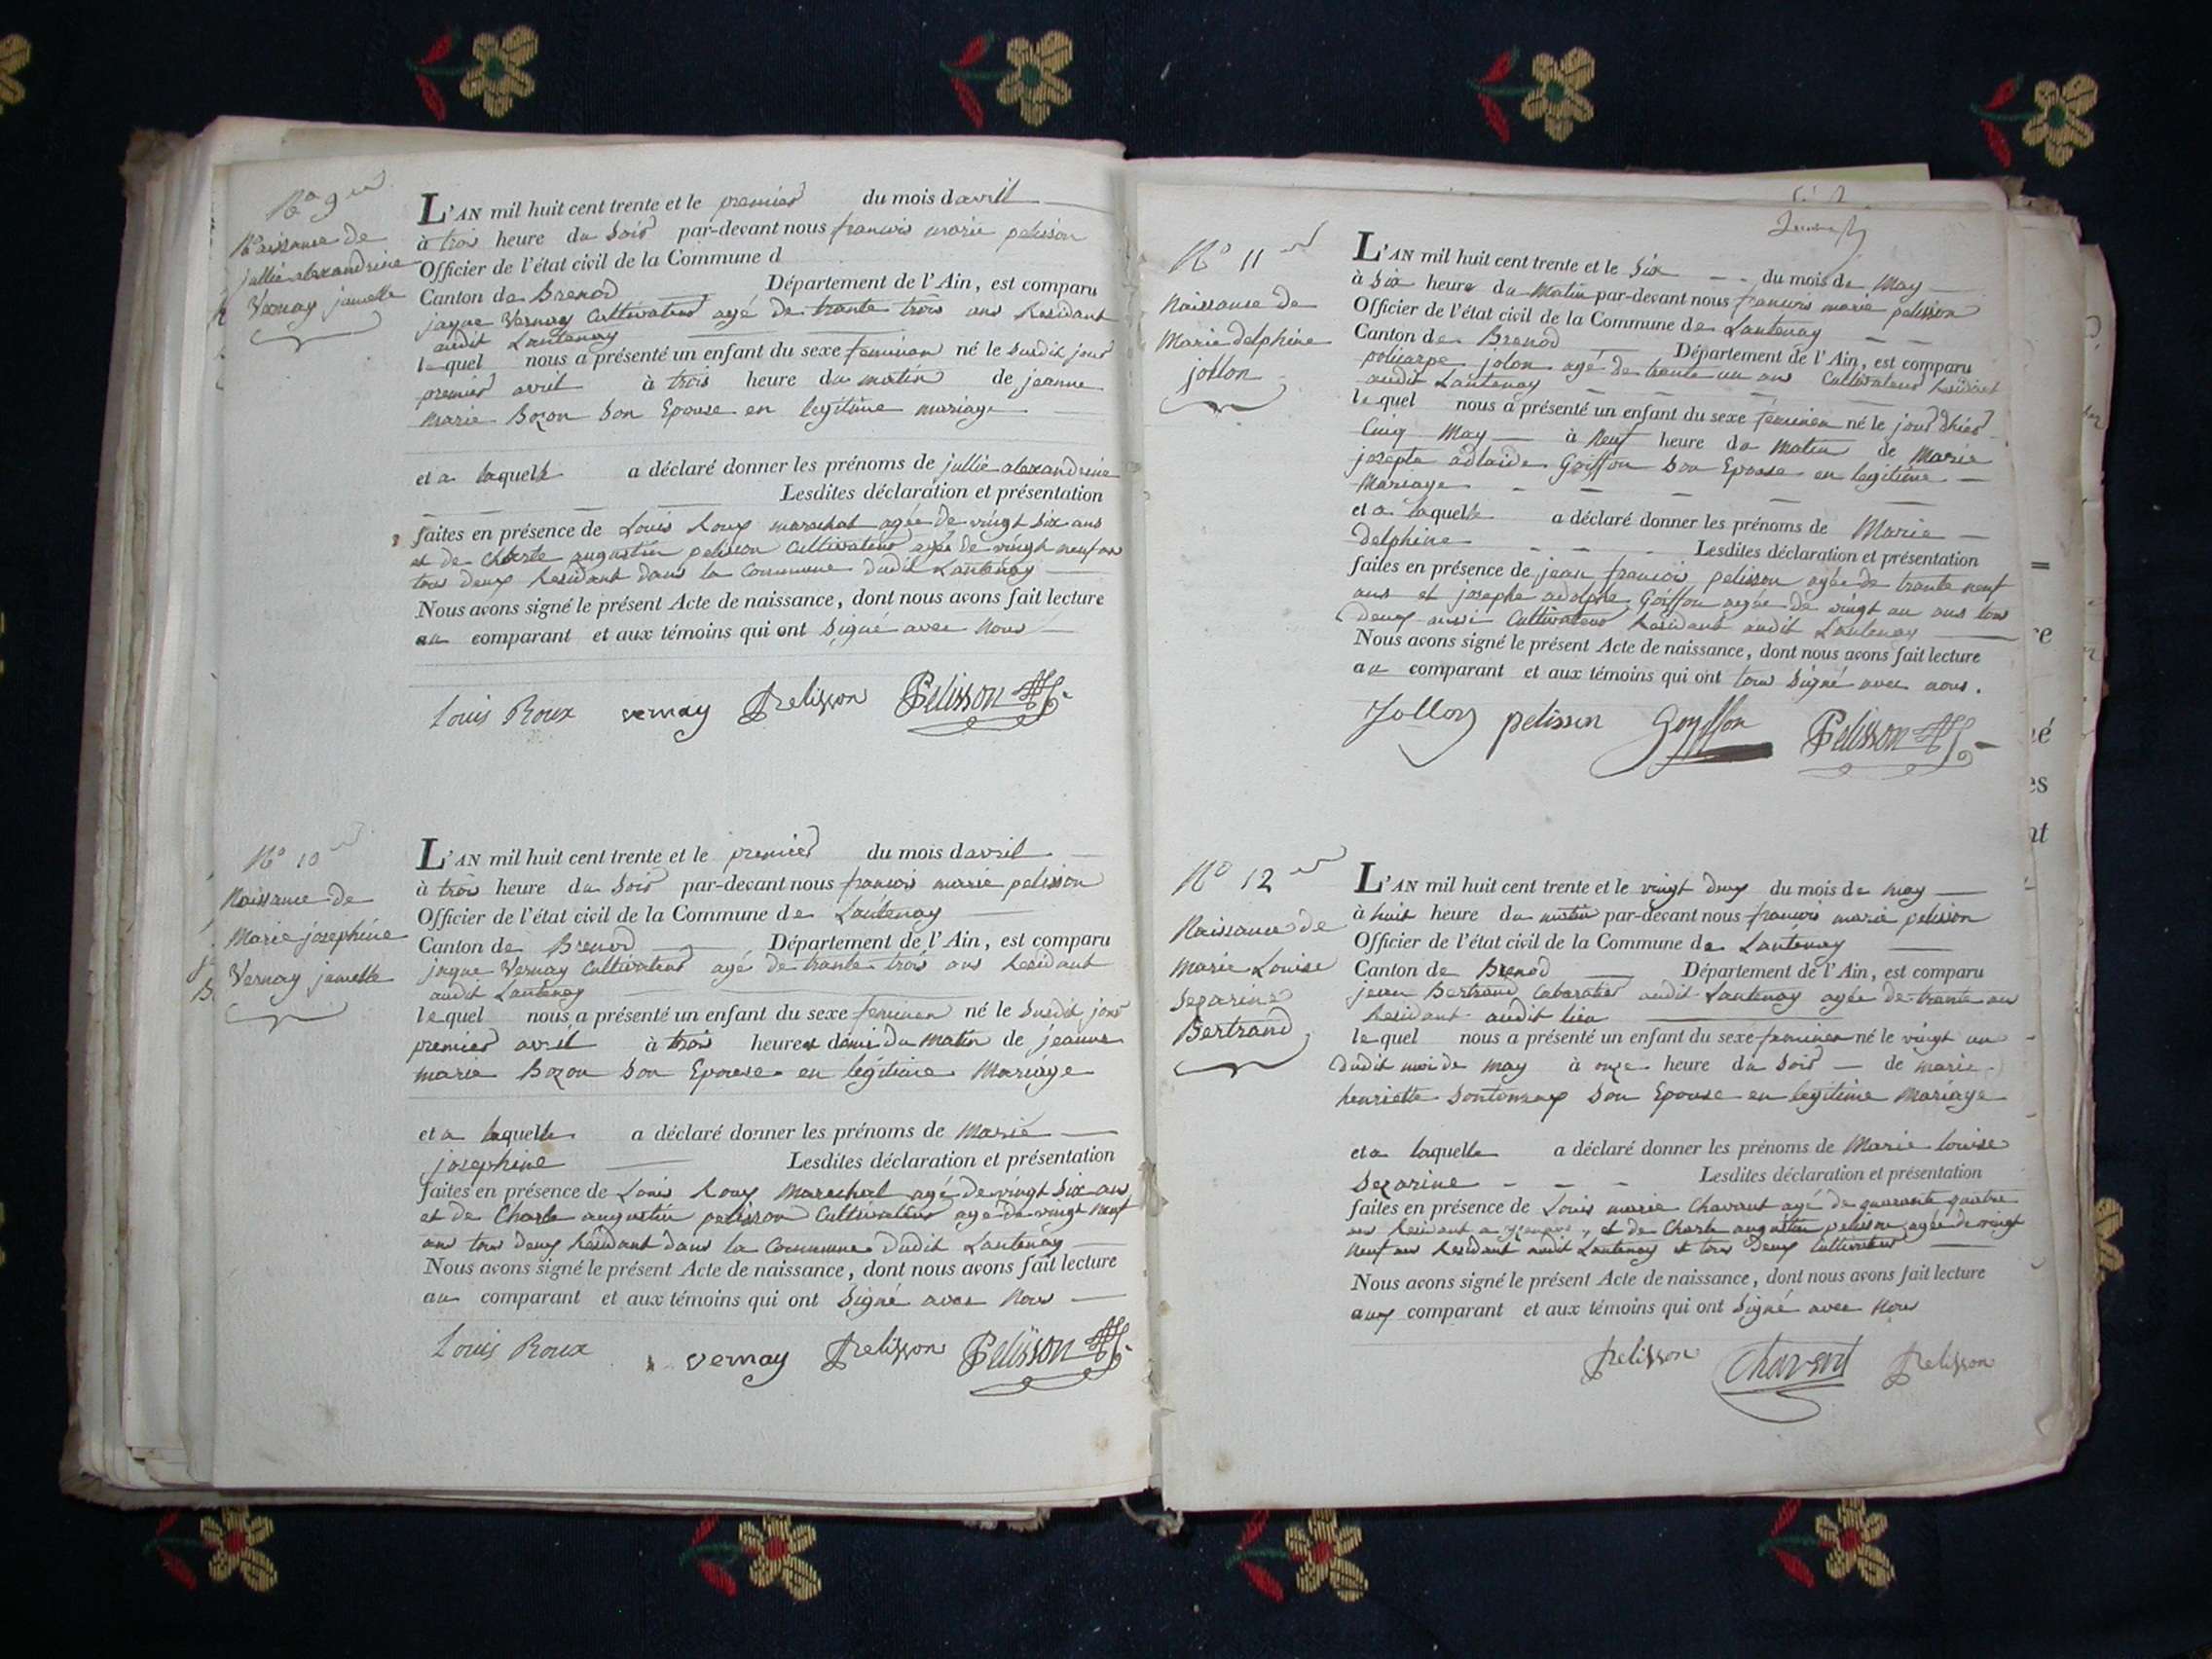 No 9
Naissance de
jullie alexandrine
Vernay jumelle
L'AN mil huit cent trente et le premier du mois d avril
à trois heure du soir par-devant nous francois marie pelisson
Officier de l'état civil de la Commune d
Canton de Brenod Département de l'Ain, est comparu
jaque Vernay Cultivateur agé de trante trois ans Residant
audit Lantenay
lequel nous a présenté un enfant du sexe feminen né le susdit jour
premier avril à trois heure du matin de jeanne
marie Bozon son Epouse en legitime mariage
et a laquelle a déclaré donner les prénoms de jullie alexandrine
Lesdites déclaration et présentation
faites en présence de Louis Roux marechal agée de vingt six ans
et de Charle augustin pelisson Cultivateur agée de vingt neuf ans
tous deux Residant dans la Commune dudit Lantenay
Nous avons signé le présent Acte de naissance, dont nous avons fait lecture
au comparant et aux témoins qui ont signé avec nous
Louis Roux vernay Pelisson Pelisson
No 10
Naissance de
Marie josephine
Vernay jumelle
L'AN mil huit cent trente et le premier du mois d avril
à trois heure du soir par-devant nous francois marie pelisson
Officier de l'état civil de la Commune de Lantenay
Canton de Brenod Département de l'Ain, est comparu
jaque Vernay Cultivateur agé de trante trois ans Residant
audit Lantenay
lequel nous a présenté un enfant du sexe feminen né le susdit jour
premier avril à trois heure et demi du matin de jeanne
marie Bozon son Epouse en légitime Mariage
et a laquelle a déclaré donner les prénoms de Marie
josephine Lesdites déclaration et présentation
faites en présence de Louis Roux Marechal agé de vingt six ans
et de Charle augustin pelisson Cultivateur agé de vingt neuf
ans tous deux Residant dans la Commune dudit Lantenay
Nous avons signé le présent Acte de naissance, dont nous avons fait lecture
au comparant et aux témoins qui ont signé avec nous
Louis Roux vernay Pelisson Pelisson
No 11
Naissance de
Marie delphine
jollon
L'AN mil huit cent trente et le six du mois de May
à six heure du Matin par-devant nous francois marie pelisson
Officier de l'état civil de la Commune de Lantenay
Canton de Brenod Département de l'Ain, est comparu
policarpe jolon agé de trante un ans Cultivateur Residant
audit Lantenay
lequel nous a présenté un enfant du sexe feminen né le jour dhier
Cinq May à Neuf heure du Matin de Marie
josepte adlaide Goiffon son Epouse en legitime
Mariage
et a laquelle a déclaré donner les prénoms de Marie
delphine Lesdites déclaration et présentation
faites en présence de jean francois pelisson agée de trante neuf
ans et josephe adolphe Goiffon agée de vingt un ans tous
deux aussi Cultivateur Residant audit Lantenay
Nous avons signé le présent Acte de naissance, dont nous avons fait lecture
au comparant et aux témoins qui ont tous signé avec nous.
Jollon pelisson Goyffon Pelisson
No 12
Naissance de
Marie Louise
Sezarine
Bertrand
L'AN mil huit cent trente et le vingt deux du mois de may
à huit heure du matin par-devant nous francois marie pelisson
Officier de l'état civil de la Commune de Lantenay
Canton de Brenod Département de l'Ain, est comparu
jean Bertrand Cabaratier audit Lantenay agée de trante ans
Residant audit lieu
lequel nous a présenté un enfant du sexe feminen né le vingt un
dudit moi de may à onze heure du soir de marie
henriette Sontonnax son Epouse en legitime Mariage
et a laquelle a déclaré donner les prénoms de Marie louise
sezarine Lesdites déclaration et présentation
faites en présence de Louis marie Chavant agé de quarante quatre
ans Residant a et de Charle augustin pelisson agée de vingt
neuf ans Residant audit Lantenay et tous deux Cultivateur
Nous avons signé le présent Acte de naissance, dont nous avons fait lecture
aux comparant et aux témoins qui ont signé avec nous
Pelisson Chavent Pelisson